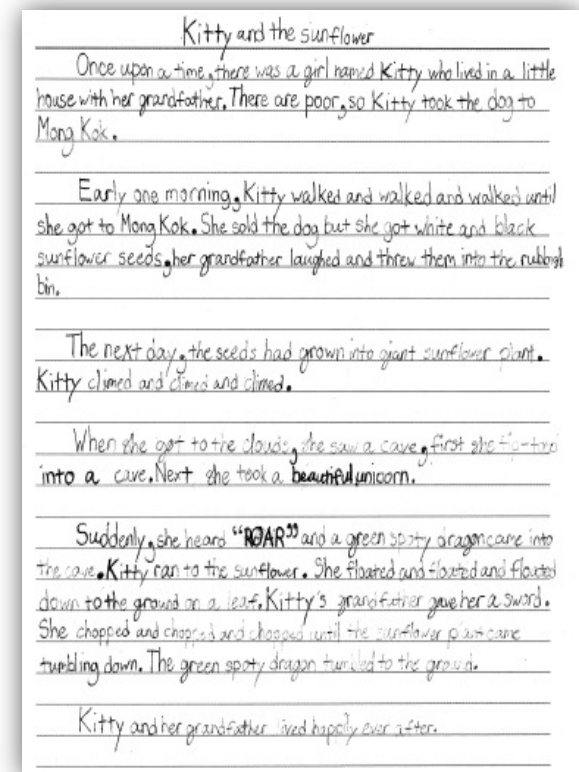 Kitty and the sunflower
Once upon a time, there was a girl named Kitty who lived in a little
house with her grandfather. There are poor, so Kitty took the dog to
Mong Kok.
Early one morning, Kitty walked and walked and walked until
she got to Mong Kok. She sold the dog but she got white and black
sunflower seeds, her grandfather laughed and threw them into the rubbish
bin.
The next day, the seeds had grown into giant sunflower plant.
Kitty climed and climed and climed.
When she got to the clouds, she saw a cave, first she tip-toed
into a cave. Next she took a beautiful unicorn.
Suddenly, she heard “ROAR” and a green spoty dragon came into
the cave. Kitty ran to the sunflower. She floated and floated and floated
down to the ground on a leaf. Kitty's grandfather gave her a sword.
She chopped and chopped and chopped until the sunflower plant came
tumbling down. The green spoty dragon tumbled to the ground.
Kitty and her grandfather lived happily ever after.